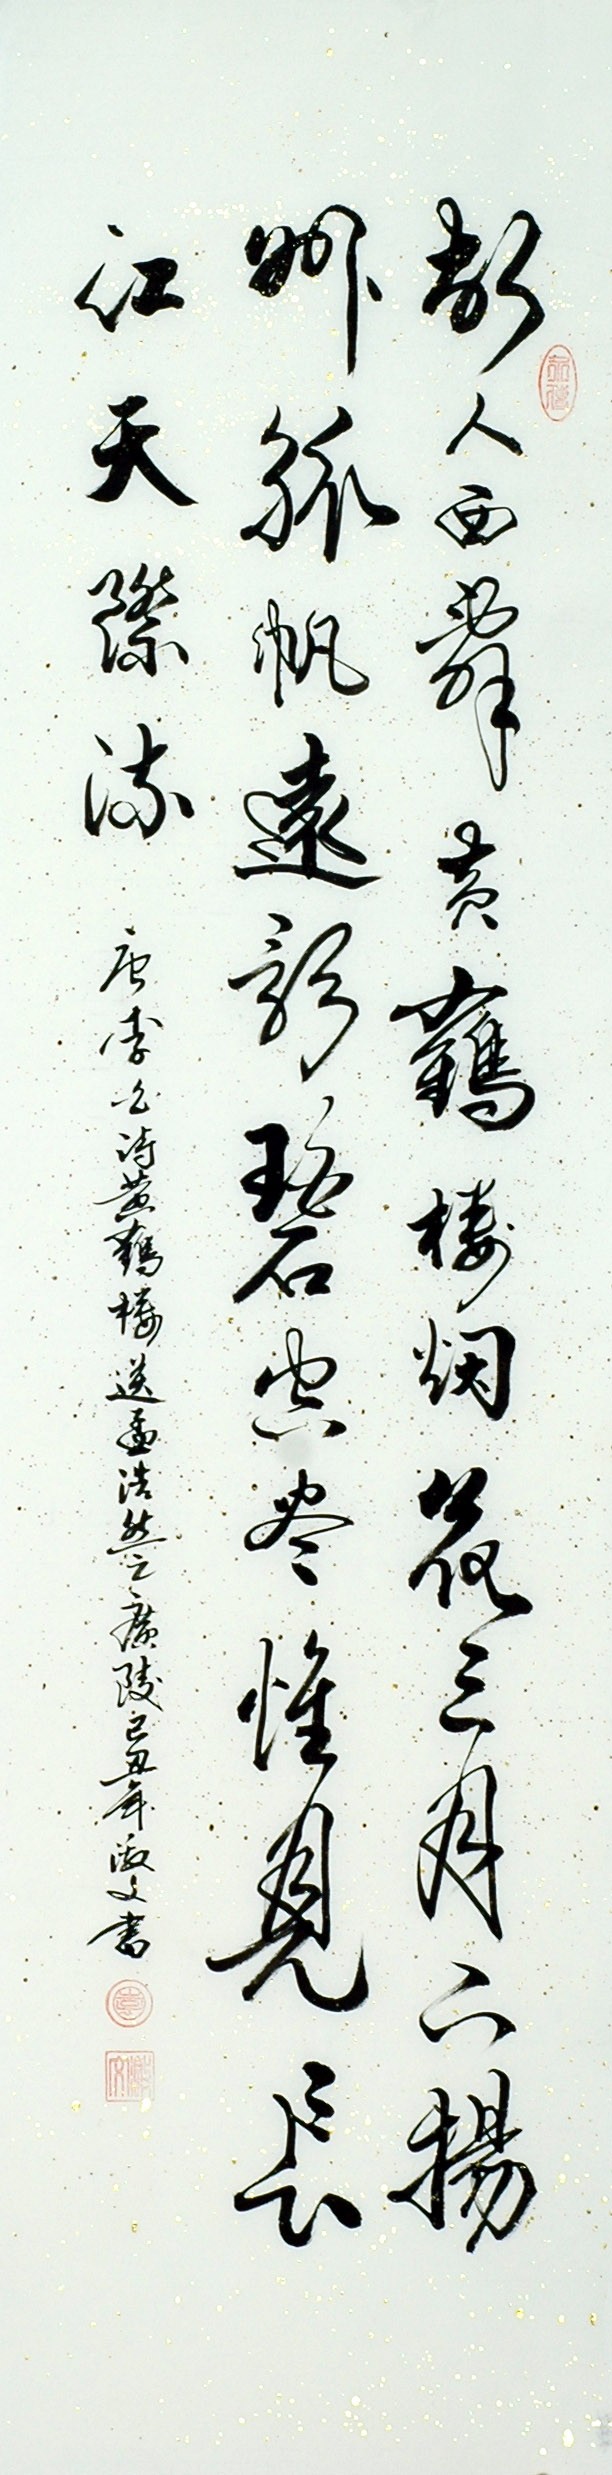 故人西辞黄鶴楼烟花三月下揚
州孤帆遠影碧空尽惟見長
江天際流
唐李白诗黄鶴楼送孟浩然之廣陵己丑年淑文書